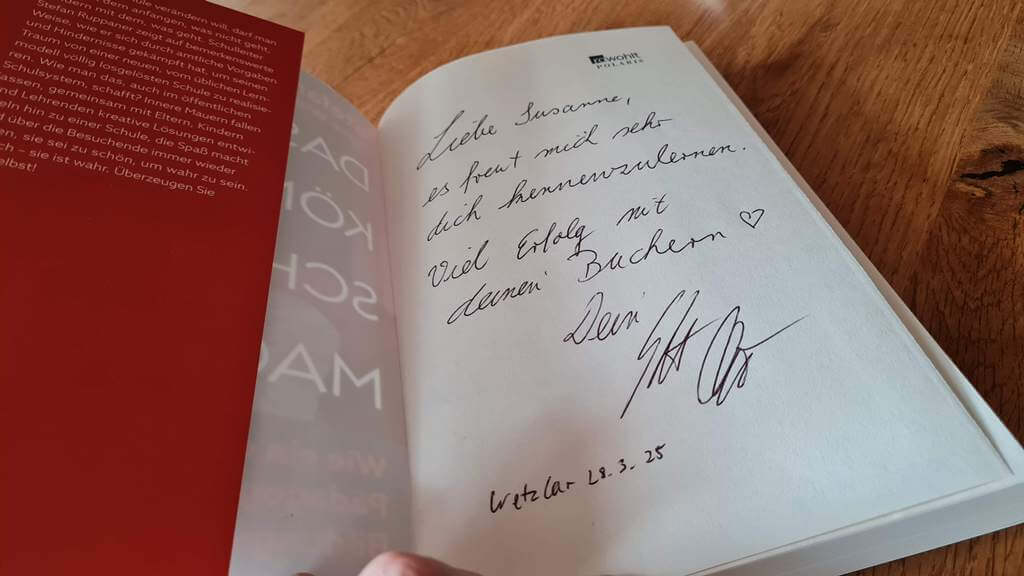 verändern will, darf man
anfangen, was nicht geht,
dern mit dem, was geht. Schulleiter
Stefan Ruppaner zeigt auf bemerkenswerte
Weise, wie er sich
und Hindernisse hat, um den
Traum von einer neuen, vom üblichen Lern-
modell völlig losgelösten Schule zu realisie-
ren. Wie man das auch im öffentlichen
Schulsystem schafft? Innere Mauern fallen
lassen, gemeinsam mit Eltern, Kindern
nd Lehrenden kreative Lösungen entwi-
eln hin zu einer Schule, die Spaß macht
d über die Besuchende immer wieder
en, sie sei zu schön, um wahr zu sein.
ch – sie ist wahr. Überzeugen Sie
elbst!
DAS
KÖN
SCH
MAC
rowohlt
POLARIS
Liebe Susanne,
es freut mich sehr
dich kennenzulernen.
Viel Erfolg mit
deinen Büchern ♡
Dein
Wetzlar 28.3.25